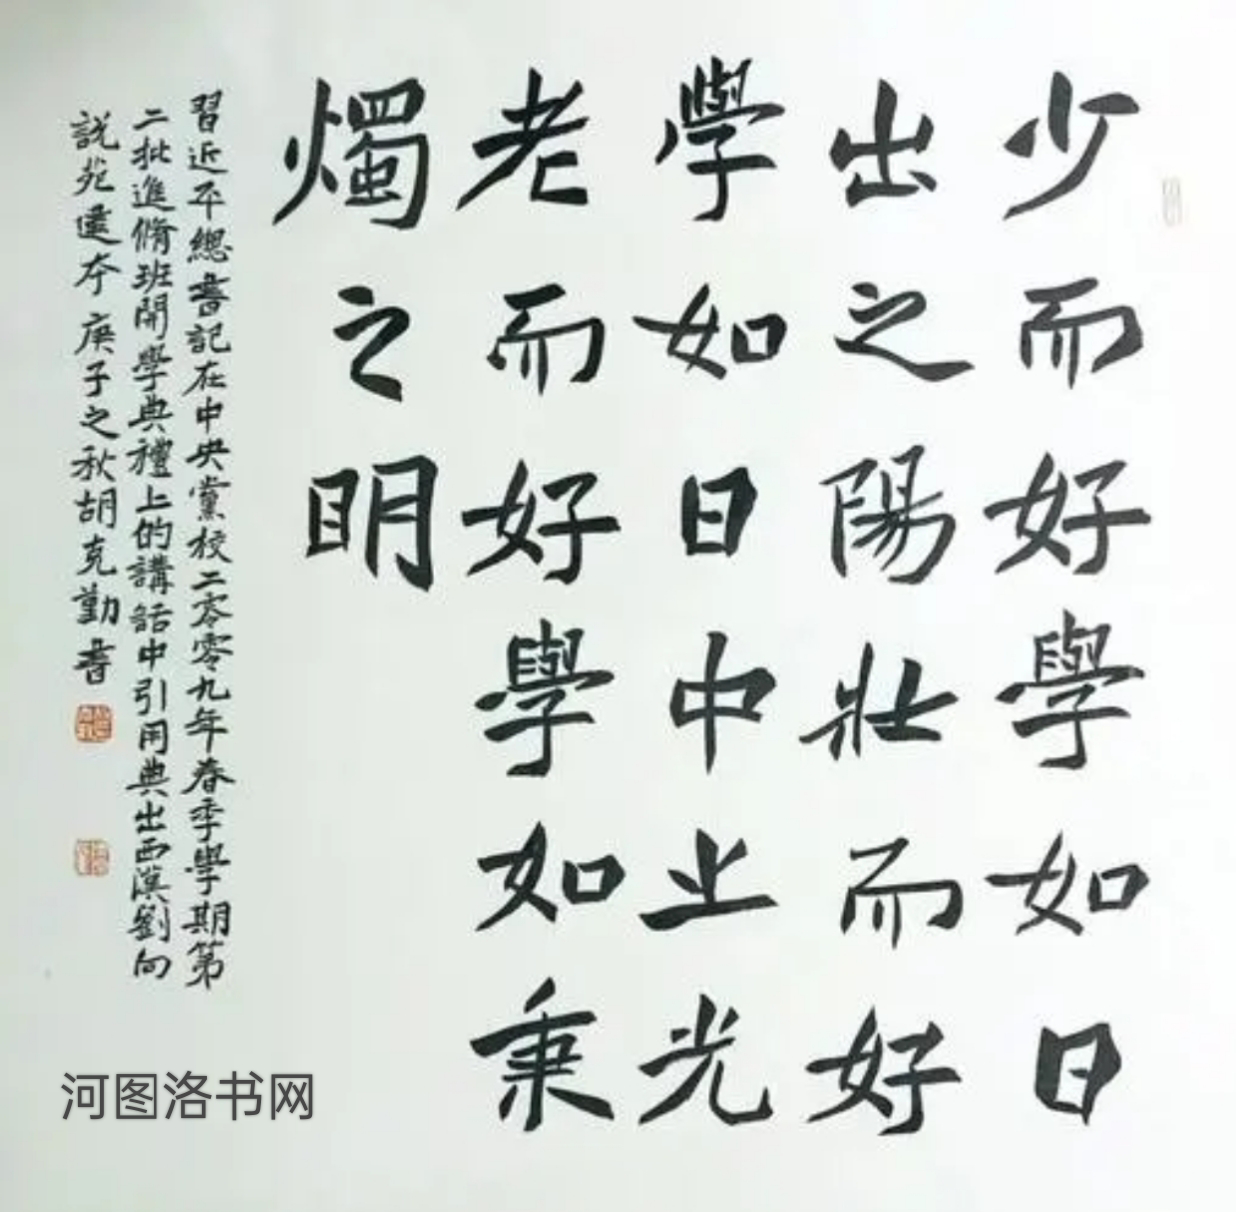 少而好學如日
出之陽壯而好
學如日中之光
老而好學如秉
燭之明
習近平總書記在中央黨校二零零九年春季學期第
二批進脩班開學典禮上的講話中引用典出西漢劉向
說苑建本 庚子之秋胡克勤書
河图洛书网